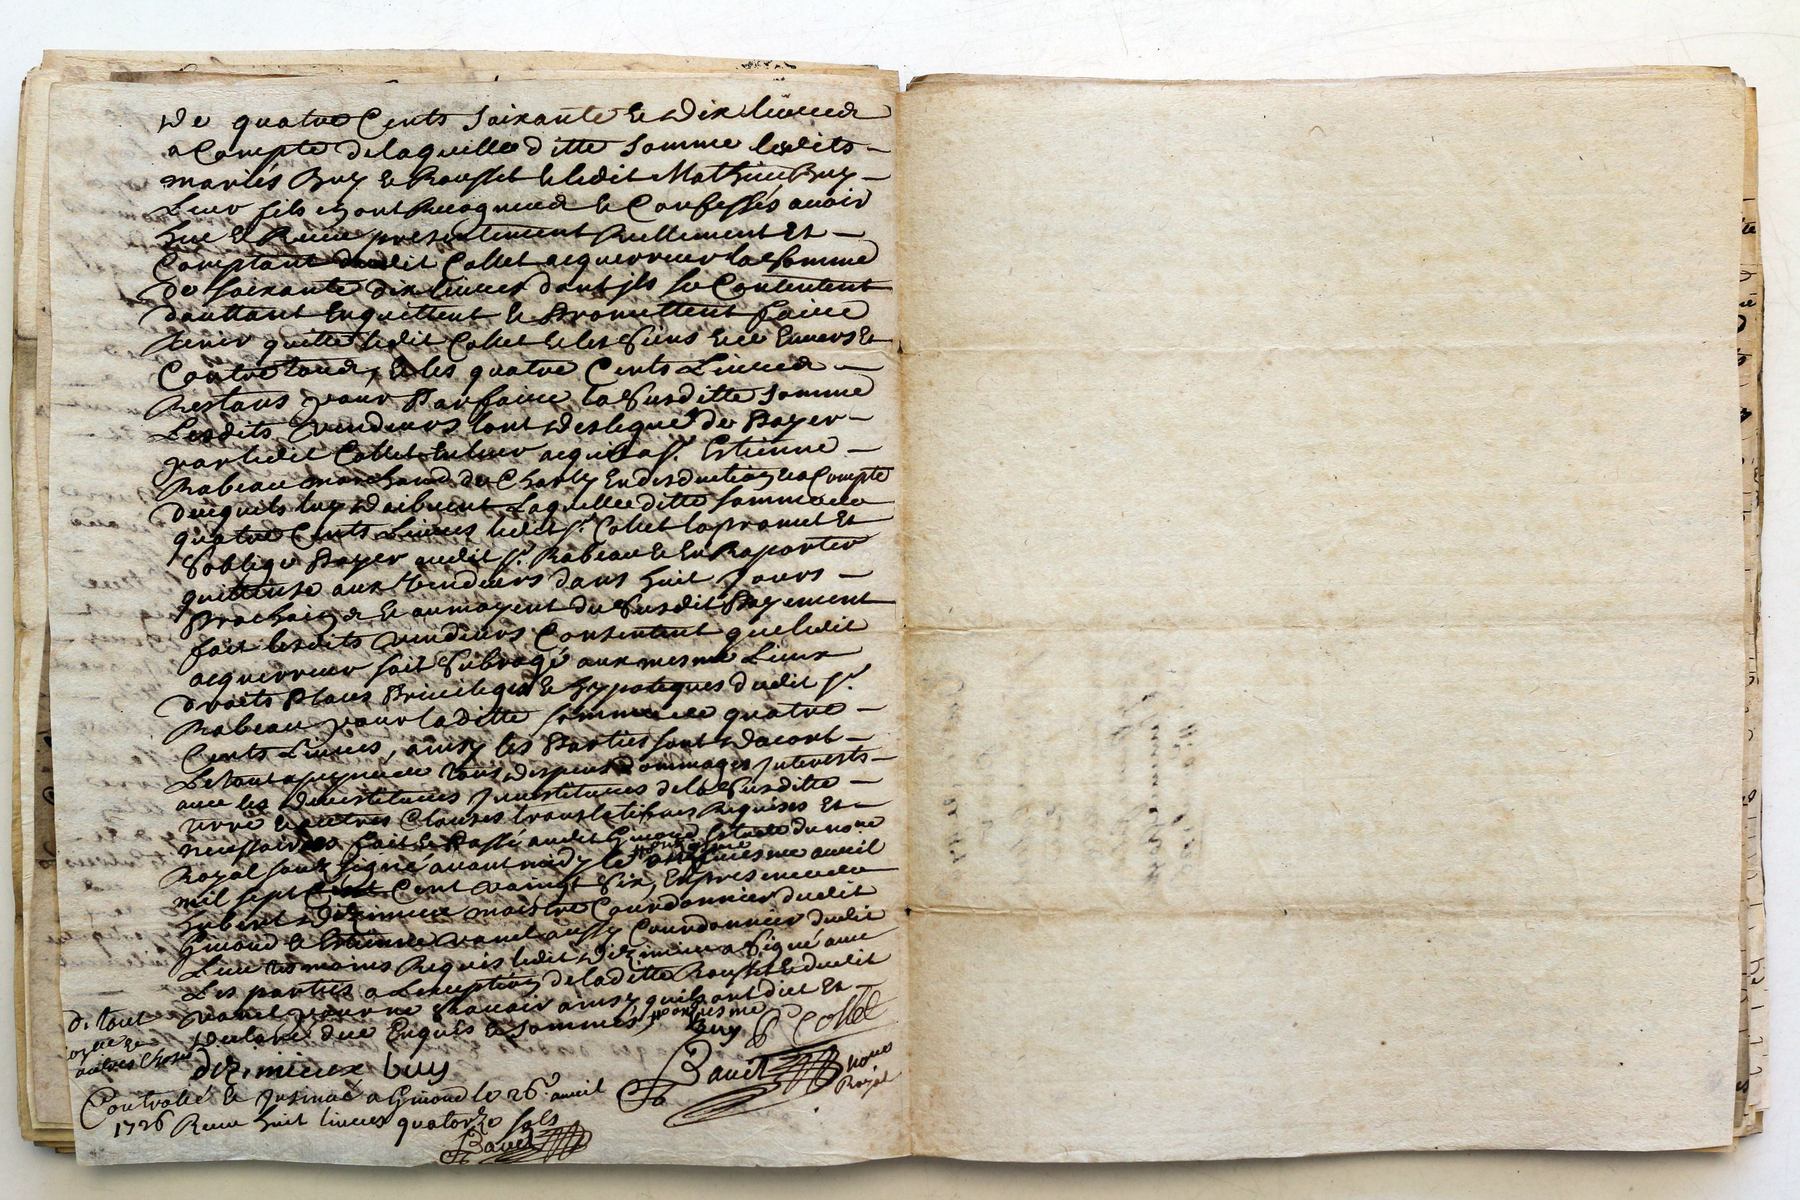 de quatre Cents soixante & dix livres
a Compte de laquelle ditte somme lesdits
mariés Buy & Rousset & ledit Mathieu Buy
Leur fils ont Recogneu & Confessés avoir
heu & Receu presentement Reellement Et
Comptant dudit Collet acquerreur la somme
de soixante dix livres dont ils se Contentent
dauttant Enquittent & Promettent faire
tenir quitte ledit Collet & les siens Envers Et
Contre tous, & les quatre Cents Livres
Restans pour Parfaire la susditte somme
Lesdits vendeurs lont delegué de Payer
par ledit Collet En leur acquit a sr. Estienne
Rabeau marchand de Charly En deduction & a Compte
de ce quils luy doibvent Laquelle ditte somme de
quatre Cents Livres ledit sr. Collet la promet Et
soblige Payer audit sr. Rabeau & En Raporter
quittance aux vendeurs dans huit Jours
Prochains & aumoyent du susdit Payement
fait lesdits vendeurs Consentent que ledit
acquerreur soit subrogé aux mesme Lieux
droits Place Privileges & hypoteques dudit sr.
Rabeau pour laditte somme de quatre
Cents Livres, ainsy les Parties sont dacort
Le tout a peyne de tous despens dommages Interests
avec les devestitures Investitures de la susditte
terre & autres Clauses translatives Requises Et
necessaires fait & Passé audit Gmond Estude du no.re
Royal soub signé avant midy le onziesme avril
mil sept Cent vaingt six, En presence de
hubert dezimieux maistre Courdonnier dudit
Gmond & Estienne vanel aussy Courdonnier dudit
Lieu tesmoins Requis ledit dezimieux a signé avec
Les parties a Lexception de laditte Rousset & dudit
vanel pour ne scavoir ainsy quils ont dict Et
declaré de ce Enquis & sommés
De tout
autres choses
Buy P Collet
dezimieux buy
Bavet no.re
Royal
Controllé & Insinué a Gmond le 26e avril
1726 Receu huit livres quatorze sols
Bavet